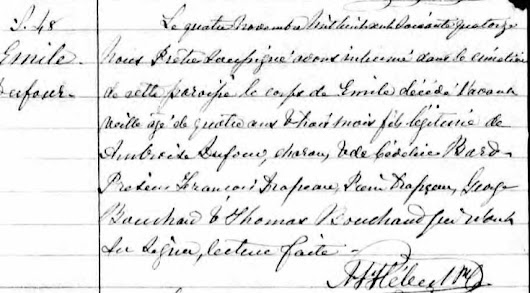 S. 48
Emile
Dufour
Le quatre Novembre mil huit cent soixante quatorze
Nous Prêtre soussigné avons inhumé dans le cimetière
de cette paroisse le corps de Emile décédé l'avant
veille âgé de quatre ans & trois mois fils légitime de
Ambroise Dufour, charon, & de Bard
Présens François Drapeau, Drapeau, George
Bouchard & Thomas Bouchard qui n'ont
su signer, lecture faite -
Ptre